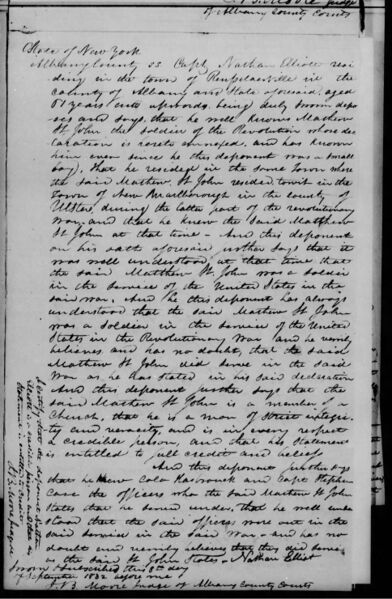 J. B. Moore Judge
of Albany County Courts
State of New York
Albany County SS Capt Nathan Elliot resi
ding in the town of Rensselaerville in the
County of Albany and State aforesaid, aged
61 years and upwards, being duly sworn depo
ses and says that he well knows Mathew
St John the soldier of the Revolution whose dec
laration is hereto annexed, and has known
him ever since he this deponent was a small
boy, that he resided in the same town where
the said Mathew St John resided, towit in the
town of New Marlborough in the county of
Ulster, during the latter part of the revolutionary
War, and that he knew the said Matthew
St John at that time - And this deponent
on his oath aforesaid, further says that it
was well understood, at that time that
the said Matthew St John was a soldier
in the service of the United States in the
said war. And he this deponent has always
understood that the said Mathew St John
was a soldier in the service of the United
States in the Revolutionary War and he verily
believes and has no doubt, that the said
Matthew St John did serve in the said
War as he has stated in his said declaration
And this deponent further says that the
said Matthew St John is a member of a
Church, that he is a man of strict integri-
ty and veracity, and is in every respect
a credible person, and that his statement
is entitled to full credit and belief
And this deponent further says
that he knew Colo Hasbrouck and Capt Stephen
Case the officers who the said Mathew St John
States he served under, that he well under
stood that the said officers were out in the
said service in the said War - and has no
doubt and verily believes that they did serve
as the said St John States - Nathan Elliot
Sworn & Subscribed this 8th day
of September 1832 before me
J. B. Moore Judge of Albany County Courts
I certify that the deponent Nathan
Elliot is a credible person and that his
Statement is entitled to Credit
J. B. Moore Judge